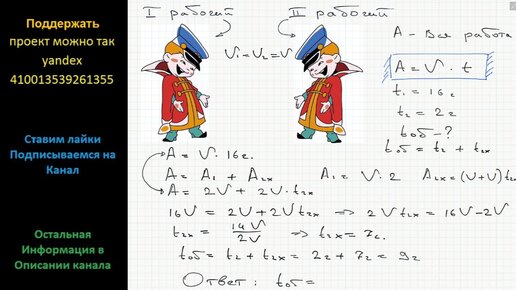 Поддержать
проект можно так
yandex
410013539261355
Ставим лайки
Подписываемся на
Канал
Остальная
Информация в
Описании канала
I рабочий
II рабочий
V₁=V₂=V
A - вся работа
A = V · t
t₁ = 16 ч
t₂ = 2 ч
tоб - ?
tоб = t₂ + t₂х
A = V · 16 ч.
A = A₁ + A₂х
A₁ = V · 2
A₂х=(V+V)t₂х
A = 2V + 2V · t₂х
16V = 2V + 2V t₂х ⇒ 2V t₂х = 16V - 2V
t₂х = 14V / 2V ⇒ t₂х = 7ч.
tоб = t₂ + t₂х = 2ч + 7ч = 9ч
Ответ : tоб =